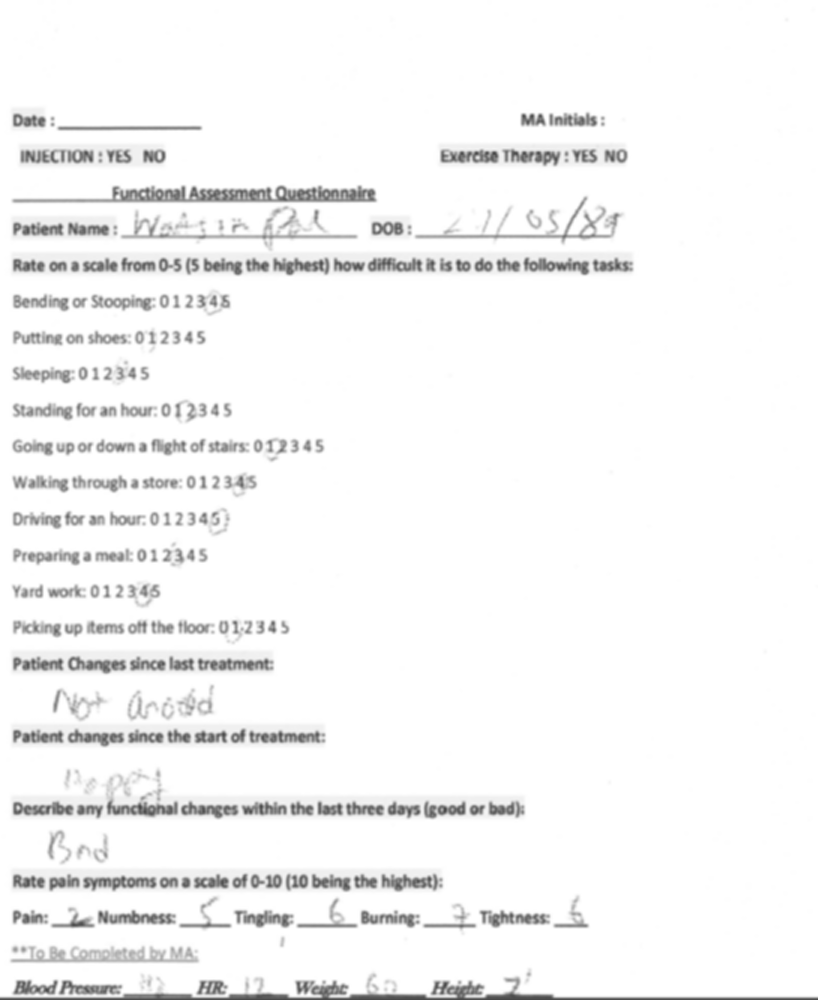 Date : 
MA Initials :
INJECTION : YES NO
Exercise Therapy : YES NO
Functional Assessment Questionnaire
Patient Name : DOB : /05/89
Rate on a scale from 0-5 (5 being the highest) how difficult it is to do the following tasks:
Bending or Stooping: 0 1 2 3 4 5
Putting on shoes: 0 1 2 3 4 5
Sleeping: 0 1 2 3 4 5
Standing for an hour: 0 1 2 3 4 5
Going up or down a flight of stairs: 0 1 2 3 4 5
Walking through a store: 0 1 2 3 4 5
Driving for an hour: 0 1 2 3 4 5
Preparing a meal: 0 1 2 3 4 5
Yard work: 0 1 2 3 4 5
Picking up items off the floor: 0 1 2 3 4 5
Patient Changes since last treatment:
Not
Patient changes since the start of treatment:
Describe any functional changes within the last three days (good or bad):
Bad
Rate pain symptoms on a scale of 0-10 (10 being the highest):
Pain: 2 Numbness: 5 Tingling: 6 Burning: 7 Tightness: 6
**To Be Completed by MA:
Blood Pressure: HR: 12 Weight: 60 Height: 7'